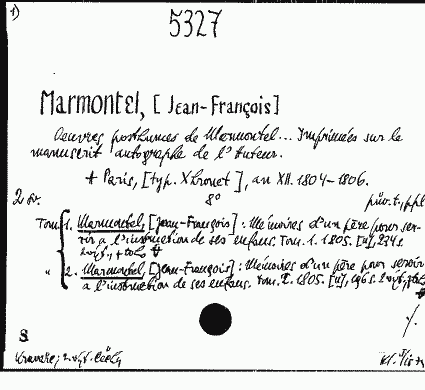 1)
5327
Marmontel, [Jean-François]
Oeuvres posthumes de Marmontel... Imprimées sur le
manuscrit autographe de l'Auteur.
+ Paris, [typ. Xhrouet], an XII. 1804-1806.
2 sv. 8°
Tom. 1. Marmontel, [Jean-François]: Mémoires d'un père pour ser-
vir à l'instruction de ses enfans. Tom. 1. 1805. [II], 234 s.
" 2. Marmontel, [Jean-François]: Mémoires d'un père pour servir
à l'instruction de ses enfans. Tom. 2. 1805. [II],
8